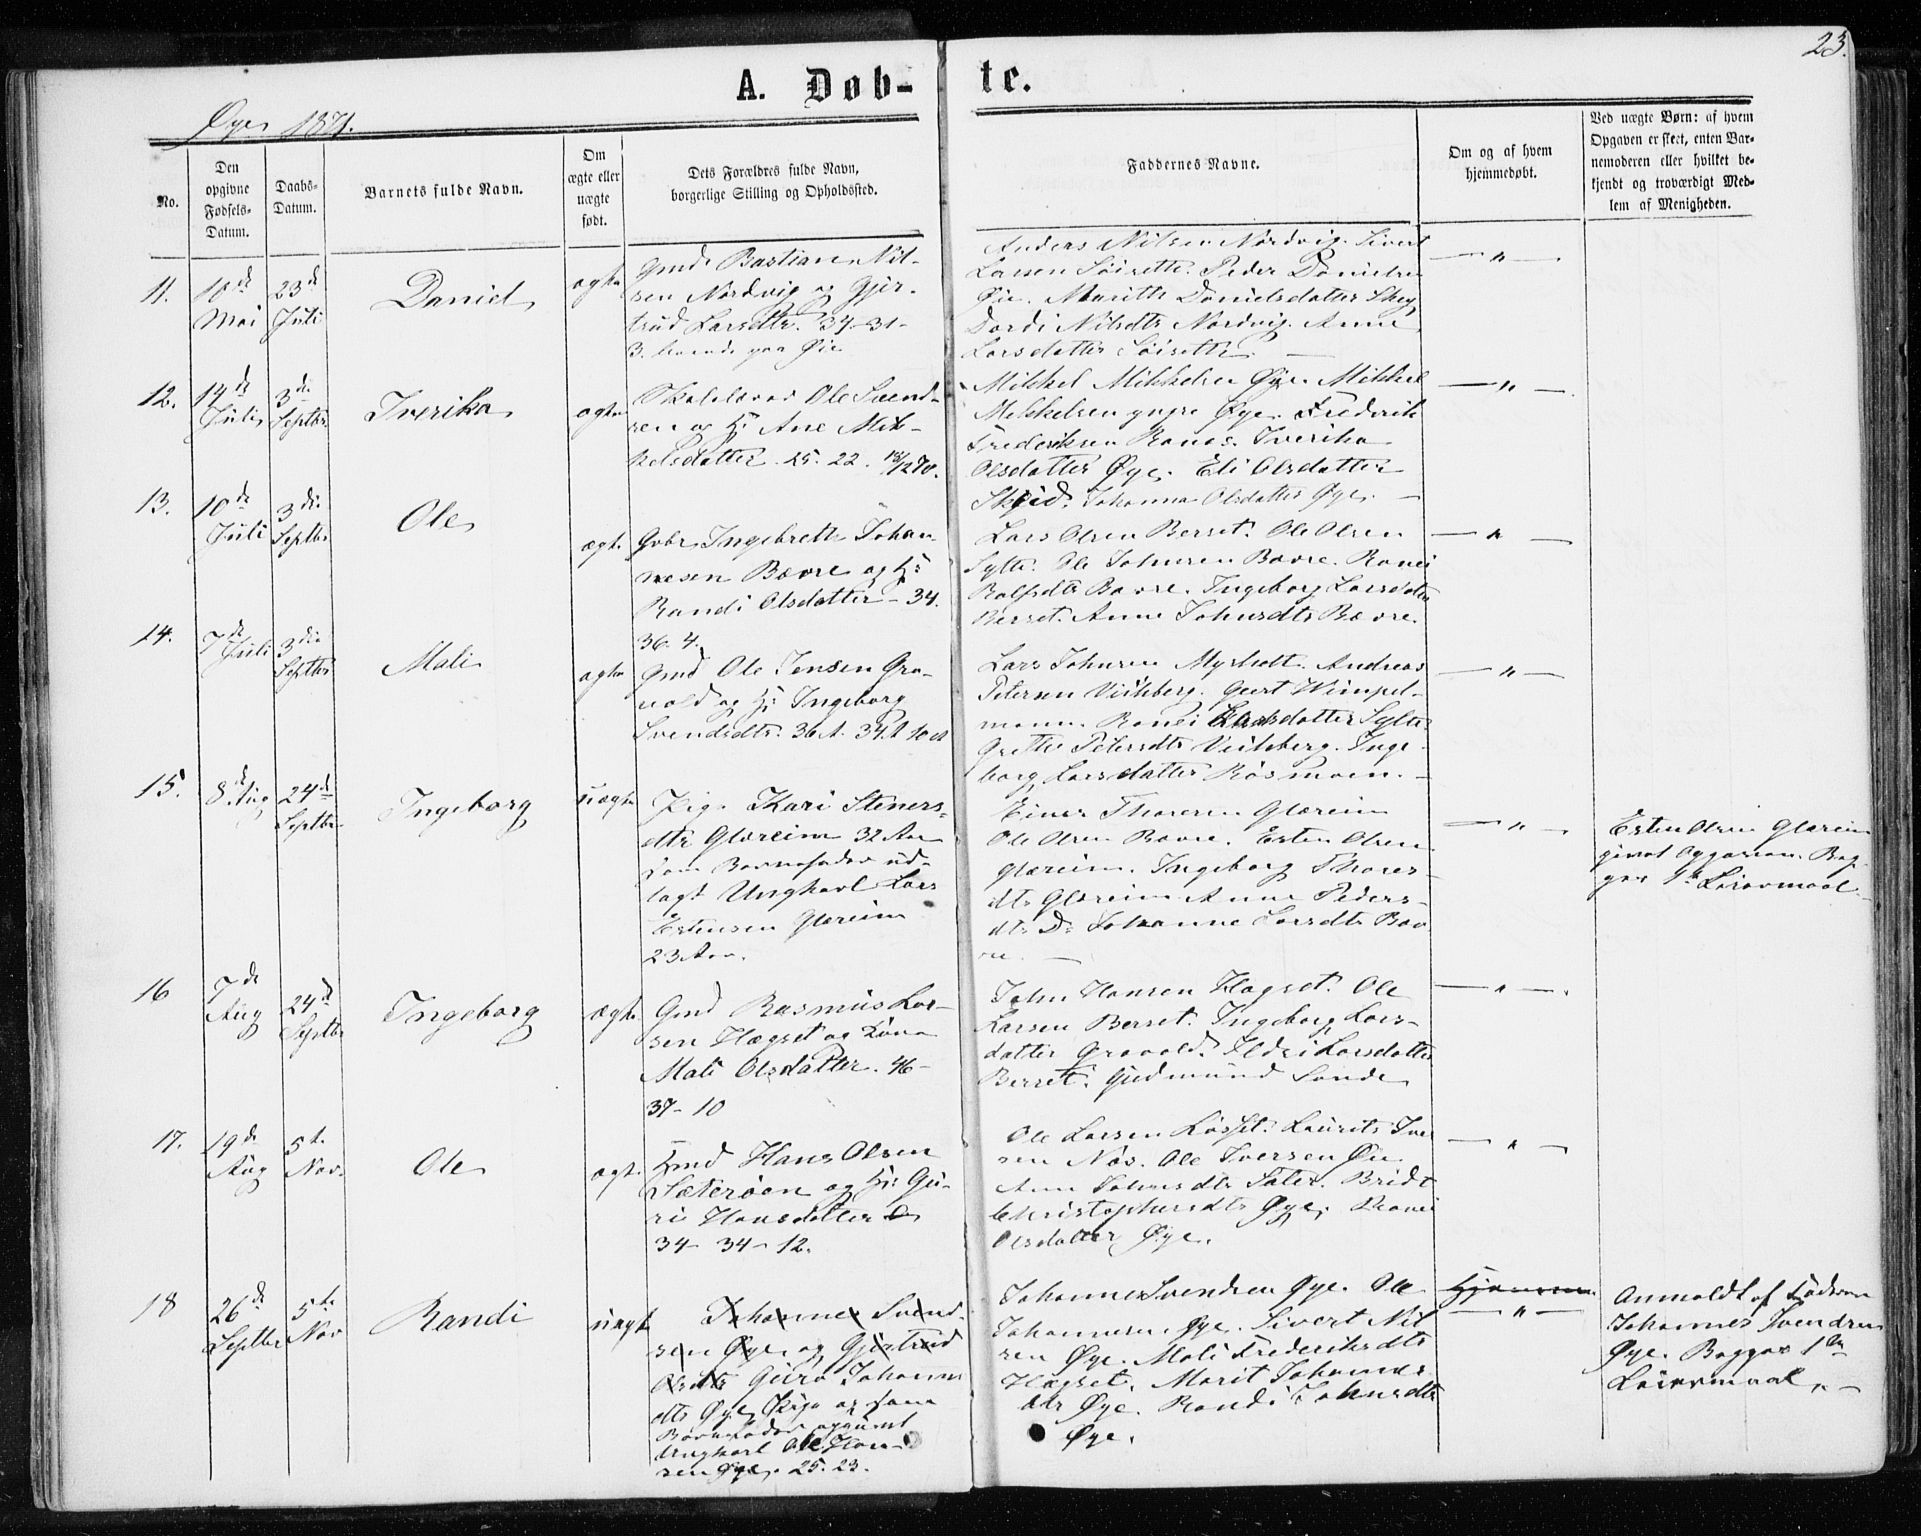 23.
A. Døb-
te.
Øye 1871.
No.
Den
opgivne
Fødsels-
Datum.
Daabs-
Datum.
Barnets fulde Navn.
Om
ægte eller
uægte
født.
Dets Forældres fulde Navn,
borgerlige Stilling og Opholdssted.
Faddernes Navne.
Om og af hvem
hjemmedøbt.
Ved uægte Børn: af hvem
Opgaven er skeet, enten Bar-
nemoderen eller hvilket be-
kjendt og troværdigt Med-
lem af Menigheden.
11.
10de
Mai
23de
Juli
Daniel
ægte
Gmd. Bastian Nil-
sen Nordvig og Gjer-
trud Larsdtr. 34-31-
paa Øie
Anders Nilsen Nordvig. Sivert
Larsen Søisette. Peder Danielsen
Øie. Maritte Danielsdatter Skey
Dordi Nilsdtr Nordvig. Anne
Larsdatter Søisette
— " —
12.
14de
Juli
3die
Septbr
Iverika
ægte
Ole Svend-
sen og H: Ane Mik-
kelsdatter. 25. 22. 18/12 70.
Mikkel Mikkelsen Øye. Mikkel
Mikkelsen yngre Øye. Frederik
Frederiksen Ranes. Iverika
Olsdatter Øye. Eli Olsdatter
Skeid. Johanna Olsdatter Øye. —
— " —
13.
10de
Juli
3die
Septbr
Ole
ægte
Gbr. Ingebrett Johan
nesen Bævre og H:
Randi Olsdatter - 34.
36. 4.
Lars Olsen Berset. Ole Olsen
Sylte. Ole Johnsen Bævre. Ranei
Rolfsdtr Bævre. Ingeborg Larsdatter
Berset. Anne Johnsdtr Bævre.
— " —
14.
7de Juli
3die
Septbr
Mali
ægte
Gmd Ole Jensen Gra-
vold og H: Ingeborg
Svendsdtr. 36 A. 34 A 10 A
Lars Johnsen Myrholt. Andreas
Petersen Viikberg. Geert Wimpel-
mann. Ranei Larsdatter Sylte
Grethe Petersdtr Viikberg. Inge-
borg Larsdatter Røsmoen. —
— " —
15.
8de Aug
24de
Septbr
Ingeborg
uægte
Pige Kari Steners-
dtr Glæreim 32 Aar
som Barnefader ud-
lagt Ungkarl Lars
Estensen Glæreim
23 Aar.
Einer Thoresen Glæreim
Ole Olsen Bævre. Esten Olsen
Glæreim. Ingeborg Thores-
dtr Glæreim Anne Peders-
dtr Do Johanne Larsdtr Bæv
re. —
— " —
Esten Olsen Glæreim
givet Opgaven. Beg-
ges 1ste Leiermaal.
16
7de
Aug
24de
Septbr
Ingeborg
ægte
Gmd Rasmus Lar-
sen Hægset og Kone
Mali Olsdatter. 46-
37- 10
John Hansen Hagset. Ole
Larsen Berset. Ingeborg Lars-
datter Gravold. Eldri Larsdatter
Berset. Gudmund Sande
— " —
17.
19de
Aug
5te
Nov.
Ole
ægt.
Hmd Hans Olsen
Sæterøen og H: Gu-
ri Hansdatter
34- 34- 12.
Ole Larsen Løsset. Laurits Iver
sen Næs. Ole Iversen Øie
Ann Johnsdtr Sæter. Bridt
Christophersdtr Øye. Ranei
Olsdatter Øye.
— " —
18
26de
Septbr
5te
Nov
Randi
uægt
Johannes Svend-
sen Øye og Gjertrud
Olsdtr Guro Johannes
dtr Øye Pige og som
Barnefader opgivet
Ungkarl Ole Han-
sen Øye. 25. 23.
Johannes Svendsen Øye. Ole
Johannesen Øye. Sivert Nil
sen Øye. Mali Frederiksdtr
Hægset. Marit Johannes
dtr Øye. Randi Johnsdtr
Øye.
— " —
Anmeldt af Faderen
Johannes Svendsen
Øye. Begges 1ste
Leiermaal. —